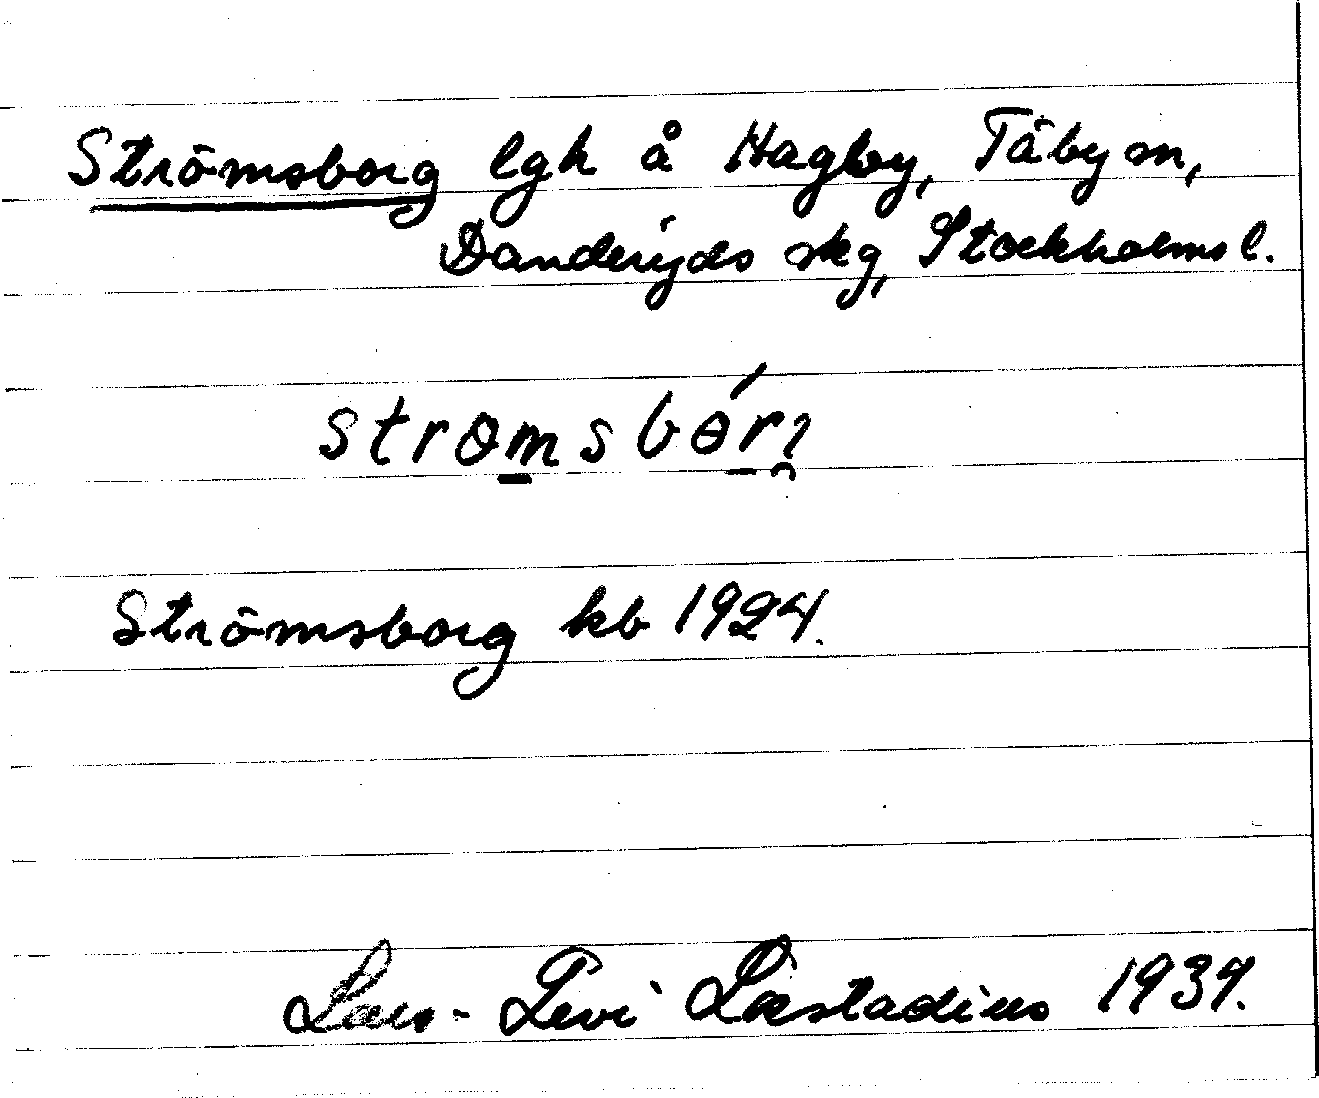 Strömsborg lgh å Hagby, Täby sn,
Danderyds skg, Stockholms l.
Strömsborg kb 1924.
Lars-Levi Læstadius 1934.